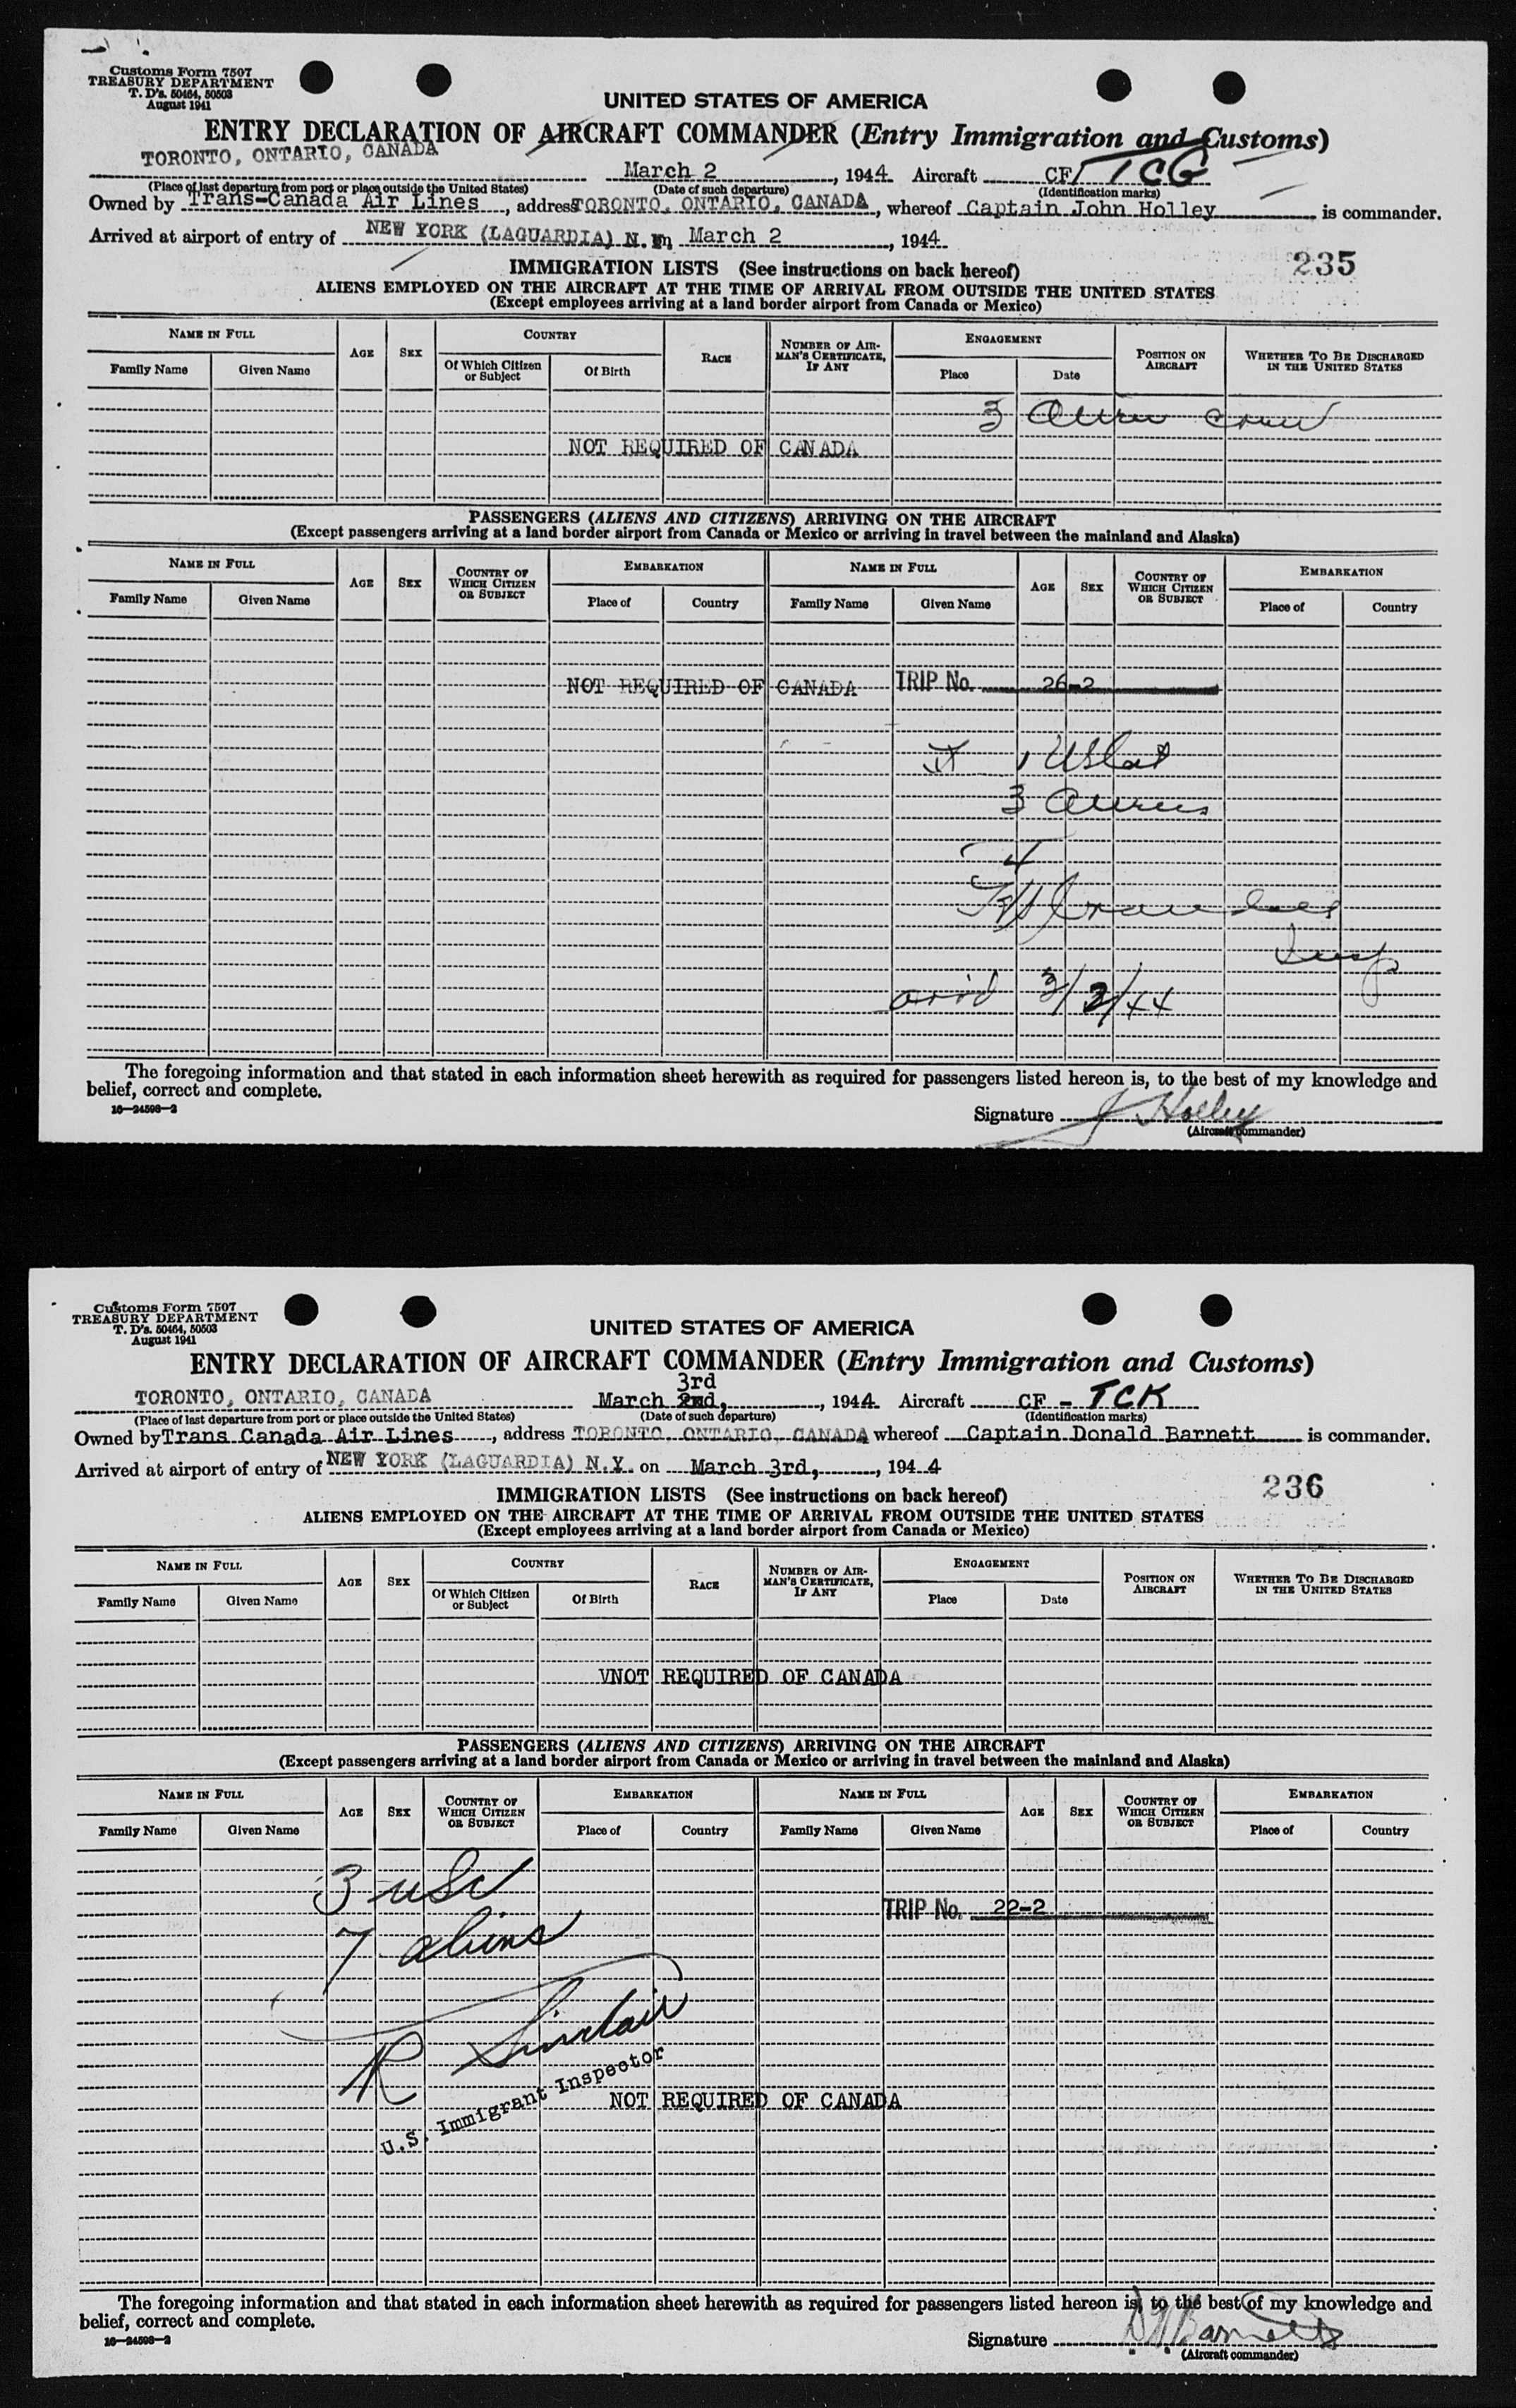 Customs Form 7507
TREASURY DEPARTMENT
T. D's. 50464, 50503
August 1941
UNITED STATES OF AMERICA
ENTRY DECLARATION OF AIRCRAFT COMMANDER (Entry Immigration and Customs)
TORONTO, ONTARIO, CANADA March 2, 1944 Aircraft CF TCG
(Place of last departure from port or place outside the United States) (Date of such departure) (Identification marks)
Owned by Trans-Canada Air Lines, address TORONTO, ONTARIO, CANADA, whereof Captain John Holley is commander.
Arrived at airport of entry of NEW YORK (LAGUARDIA) N. March 2, 1944
235
IMMIGRATION LISTS (See instructions on back hereof)
ALIENS EMPLOYED ON THE AIRCRAFT AT THE TIME OF ARRIVAL FROM OUTSIDE THE UNITED STATES
(Except employees arriving at a land border airport from Canada or Mexico)
NAME IN FULL AGE SEX COUNTRY RACE NUMBER OF AIRMAN'S CERTIFICATE, IF ANY ENGAGEMENT POSITION ON AIRCRAFT WHETHER TO BE DISCHARGED IN THE UNITED STATES
Family Name Given Name Of Which Citizen or Subject Of Birth Place Date
3 Aliens crew
NOT REQUIRED OF CANADA
PASSENGERS (ALIENS AND CITIZENS) ARRIVING ON THE AIRCRAFT
(Except passengers arriving at a land border airport from Canada or Mexico or arriving in travel between the mainland and Alaska)
NAME IN FULL AGE SEX COUNTRY OF WHICH CITIZEN OR SUBJECT EMBARKATION NAME IN FULL AGE SEX COUNTRY OF WHICH CITIZEN OR SUBJECT EMBARKATION
Family Name Given Name Place of Country Family Name Given Name Place of Country
NOT REQUIRED OF CANADA TRIP No. 26-2
3 Aliens
4
Insp
arrd 3/2/44
The foregoing information and that stated in each information sheet herewith as required for passengers listed hereon is, to the best of my knowledge and
belief, correct and complete.
16—24598-2
Signature J Holley
(Aircraft commander)
Customs Form 7507
TREASURY DEPARTMENT
T. D's. 50464, 50503
August 1941
UNITED STATES OF AMERICA
ENTRY DECLARATION OF AIRCRAFT COMMANDER (Entry Immigration and Customs)
3rd
TORONTO, ONTARIO, CANADA March 2nd, 1944 Aircraft CF - TCK
(Place of last departure from port or place outside the United States) (Date of such departure) (Identification marks)
Owned by Trans Canada Air Lines, address TORONTO, ONTARIO, CANADA whereof Captain Donald Barnett is commander.
Arrived at airport of entry of NEW YORK (LAGUARDIA) N.Y. on March 3rd, 1944
236
IMMIGRATION LISTS (See instructions on back hereof)
ALIENS EMPLOYED ON THE AIRCRAFT AT THE TIME OF ARRIVAL FROM OUTSIDE THE UNITED STATES
(Except employees arriving at a land border airport from Canada or Mexico)
NAME IN FULL AGE SEX COUNTRY RACE NUMBER OF AIRMAN'S CERTIFICATE, IF ANY ENGAGEMENT POSITION ON AIRCRAFT WHETHER TO BE DISCHARGED IN THE UNITED STATES
Family Name Given Name Of Which Citizen or Subject Of Birth Place Date
VNOT REQUIRED OF CANADA
PASSENGERS (ALIENS AND CITIZENS) ARRIVING ON THE AIRCRAFT
(Except passengers arriving at a land border airport from Canada or Mexico or arriving in travel between the mainland and Alaska)
NAME IN FULL AGE SEX COUNTRY OF WHICH CITIZEN OR SUBJECT EMBARKATION NAME IN FULL AGE SEX COUNTRY OF WHICH CITIZEN OR SUBJECT EMBARKATION
Family Name Given Name Place of Country Family Name Given Name Place of Country
3 USC
TRIP No. 22-2
7 aliens
R Sinclair
U.S. Immigrant Inspector
NOT REQUIRED OF CANADA
The foregoing information and that stated in each information sheet herewith as required for passengers listed hereon is, to the best of my knowledge and
belief, correct and complete.
16—24598-2
Signature D Barnett
(Aircraft commander)